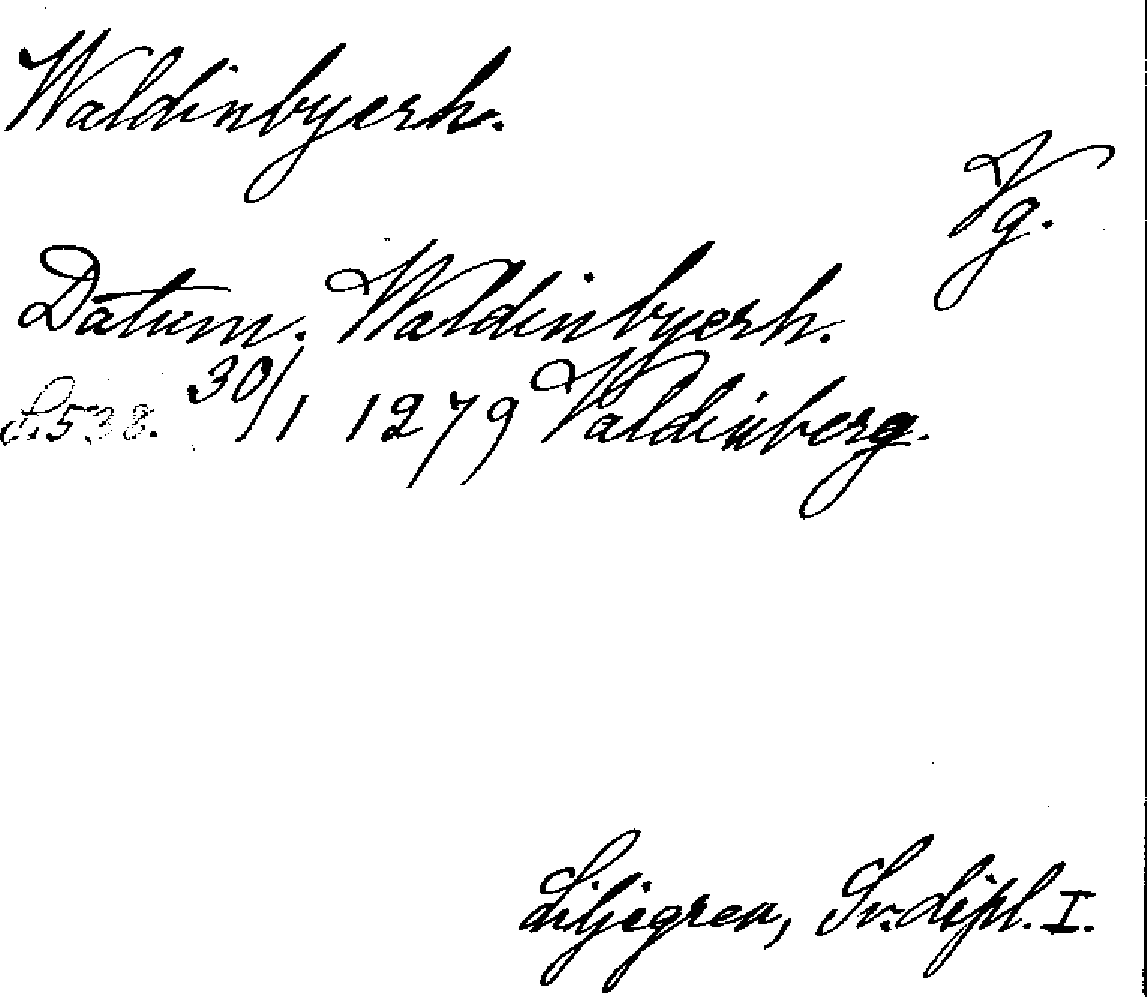 Waldinbyerh.
Vg.
Datum. Waldinbyerh.
S. 538. 30/1 1279 Valdinberg.
Liljegren, Sv. dipl. I.